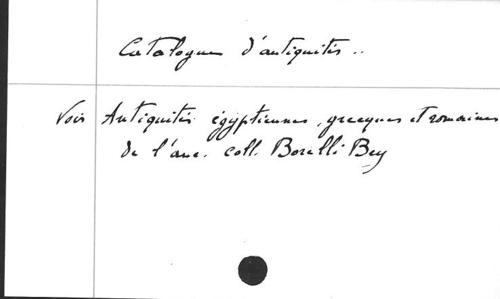 Catalogue d'antiquités..
Voir Antiquités égyptiennes, grecques et romaines
de l'anc. coll. Borelli Bey